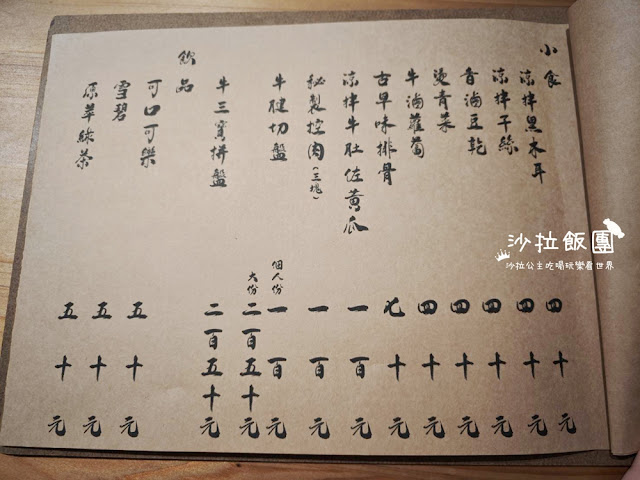 小食
涼拌黑木耳 四十元
涼拌干絲 四十元
香滷豆乾 四十元
燙青菜 四十元
牛滷蘿蔔 四十元
古早味排骨 七十元
涼拌牛肚佐黃瓜 一百元
秘製控肉(三塊) 一百元
牛腱切盤 個人份 一百元
大份 二百五十元
牛三寶拼盤 二百五十元
飲品
可口可樂 五十元
雪碧 五十元
原萃綠茶 五十元
沙拉飯團
沙拉公主吃喝玩樂看世界